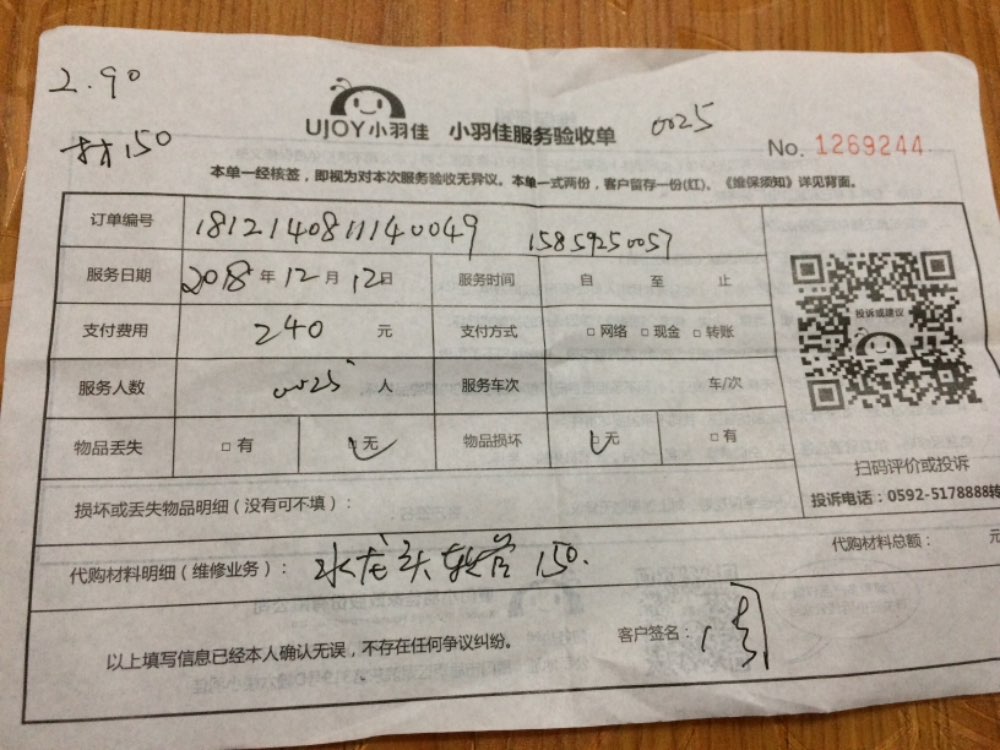 2.90
材150
UJOY小羽佳 小羽佳服务验收单 0025
No. 1269244
本单一经核签，即视为对本次服务验收无异议。本单一式两份，客户留存一份(红)。《维保须知》详见背面。
订单编号 1812140811140049 15859250057
服务日期 2018年12月12日 服务时间 自 至 止
支付费用 240 元 支付方式 □网络 □现金 □转账
投诉或建议
服务人数 0025 人 服务车次 车/次
物品丢失 □有 □无 物品损坏 □无 □有
扫码评价或投诉
投诉电话：0592-5178888转
损坏或丢失物品明细（没有可不填）：
代购材料明细（维修业务）： 水龙头软管 150.
代购材料总额： 元
以上填写信息已经本人确认无误，不存在任何争议纠纷。
客户签名：